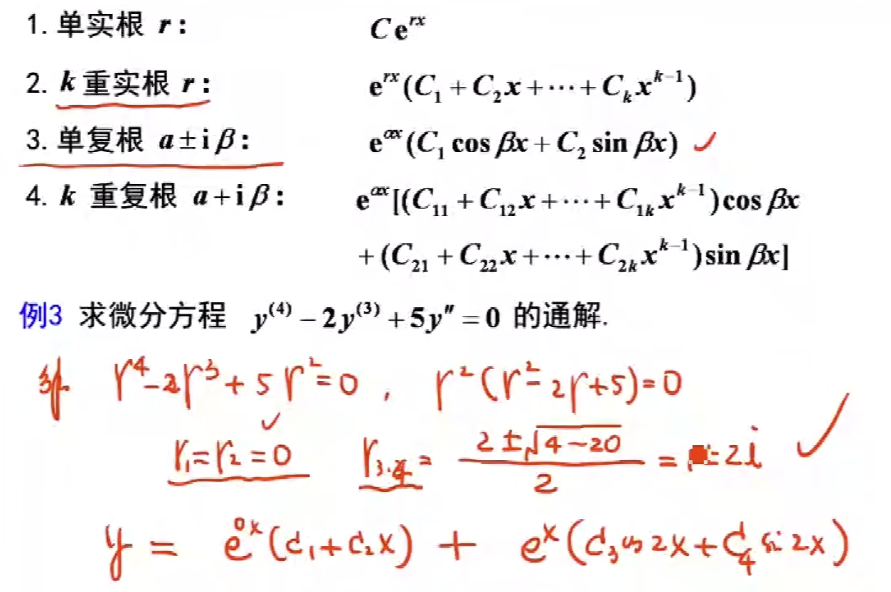 1. 单实根 r: Ce^{rx}
2. k 重实根 r: e^{rx}(C₁ + C₂x + ⋯ + C_k x^{k-1})
3. 单复根 α ± iβ: e^{αx}(C₁ cos βx + C₂ sin βx) ✓
4. k 重复根 α + iβ: e^{αx}[(C₁₁ + C₁₂x + ⋯ + C_{1k}x^{k-1})cos βx
+ (C₂₁ + C₂₂x + ⋯ + C_{2k}x^{k-1})sin βx]
例3 求微分方程 y⁽⁴⁾ − 2y⁽³⁾ + 5y″ = 0 的通解.
解 r⁴ − 2r³ + 5r² = 0 , r²(r² − 2r + 5) = 0
r₁ = r₂ = 0 ✓ r₃.₄ = (2 ± √(4−20))/2 = ± 2i ✓
y = e^{0x}(C₁ + C₂x) + e^x(C₃ cos 2x + C₄ si 2x)